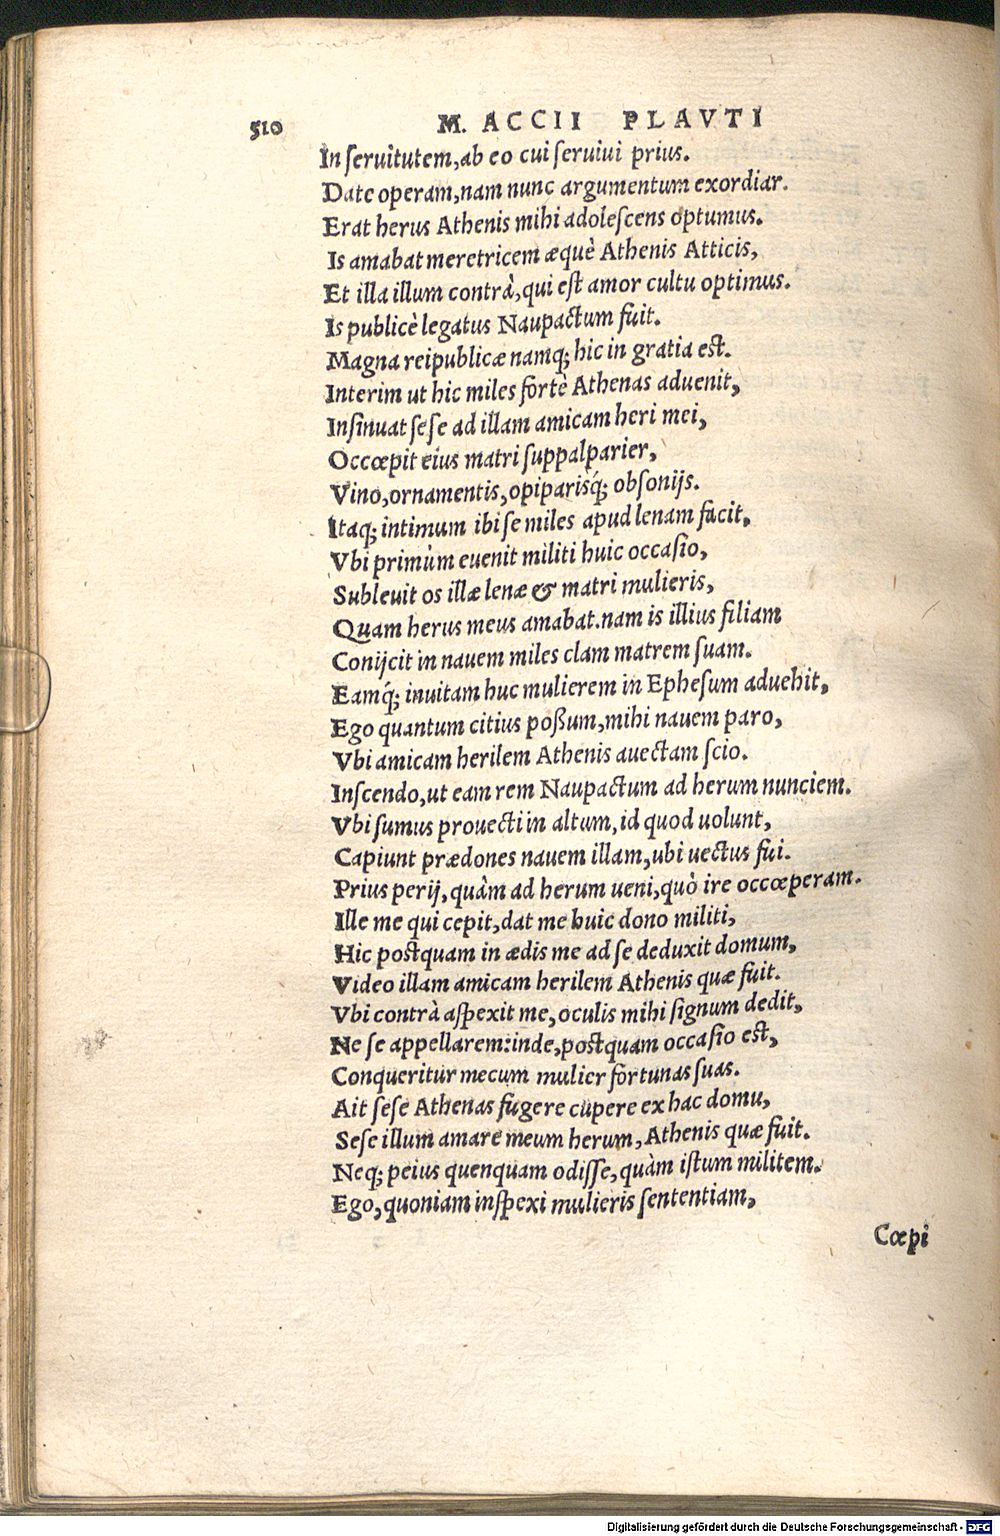 510 M. ACCII PLAVTI
In ſeruitutem,ab eo cui ſeruiui prius.
Date operam,nam nunc argumentum exordiar.
Erat herus Athenis mihi adoleſcens optumus.
Is amabat meretricem æquè Athenis Atticis,
Et illa illum contrà,qui eſt amor cultu optimus.
Is publicè legatus Naupactum fuit.
Magna reipublicæ namq; hic in gratia eſt.
Interim ut hic miles fortè Athenas aduenit,
Inſinuat ſeſe ad illam amicam heri mei,
Occœpit eius matri ſuppalparier,
Vino,ornamentis,opiparisq́; obſonijs.
Itaq; intimum ibi ſe miles apud lenam facit.
Vbi primùm euenit militi huic occaſio,
Subleuit os illæ lenæ & matri mulieris,
Quam herus meus amabat.nam is illius filiam
Conijcit in nauem miles clam matrem ſuam.
Eamq́; inuitam huc mulierem in Epheſum aduehit,
Ego quantum citius poßum,mihi nauem paro,
Vbi amicam herilem Athenis auectam ſcio.
Inſcendo,ut eam rem Naupactum ad herum nunciem.
Vbi ſumus prouecti in altum,id quod uolunt,
Capiunt prædones nauem illam,ubi uectus fui.
Prius perij,quàm ad herum ueni,quò ire occœperam.
Ille me qui cepit,dat me huic dono militi,
Hic poſtquam in ædis me ad ſe deduxit domum,
Video illam amicam herilem Athenis quæ fuit.
Vbi contrà aſpexit me,oculis mihi ſignum dedit,
Ne ſe appellarem:inde,poſtquam occaſio eſt,
Conqueritur mecum mulier fortunas ſuas.
Ait ſeſe Athenas fugere cupere ex hac domu,
Seſe illum amare meum herum,Athenis quæ fuit.
Neq; peius quenquam odiſſe,quàm iſtum militem.
Ego,quoniam inſpexi mulieris ſententiam,
Cœpi
Digitalisierung gefördert durch die Deutsche Forschungsgemeinschaft - DFG